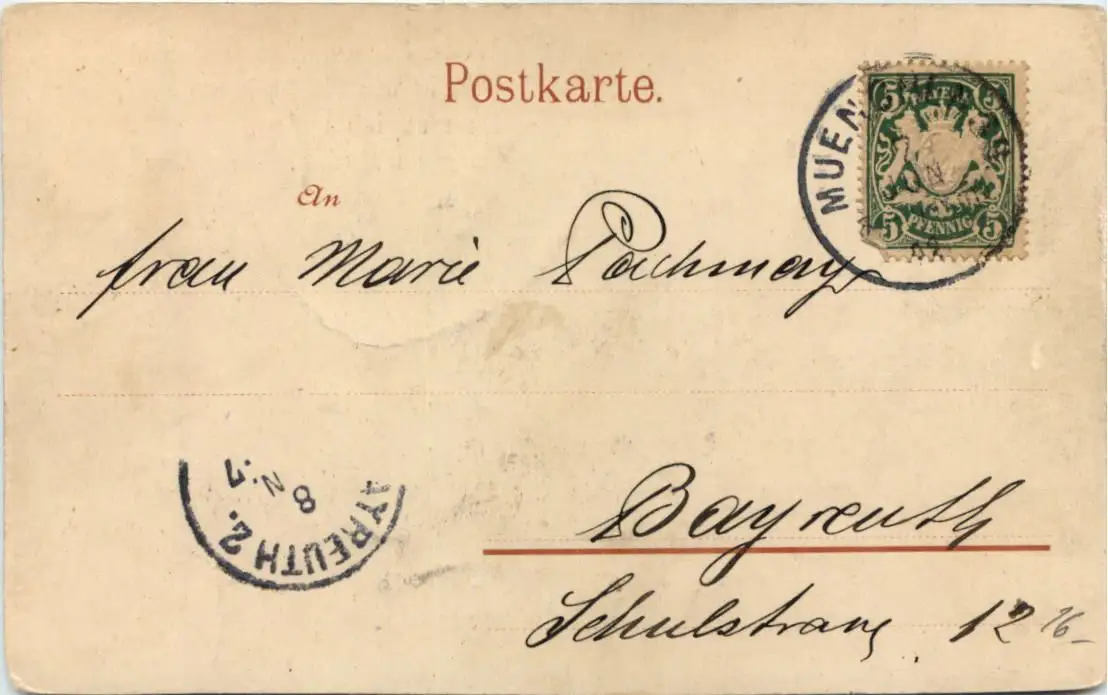 Postkarte.
BAYERN
5 5
5 PFENNIG 5
MUEN
JUN
02
An
frau Marie Pachmayr
AYREUTH 2.
8
N.
Bayreuth
Schulstrasse 12